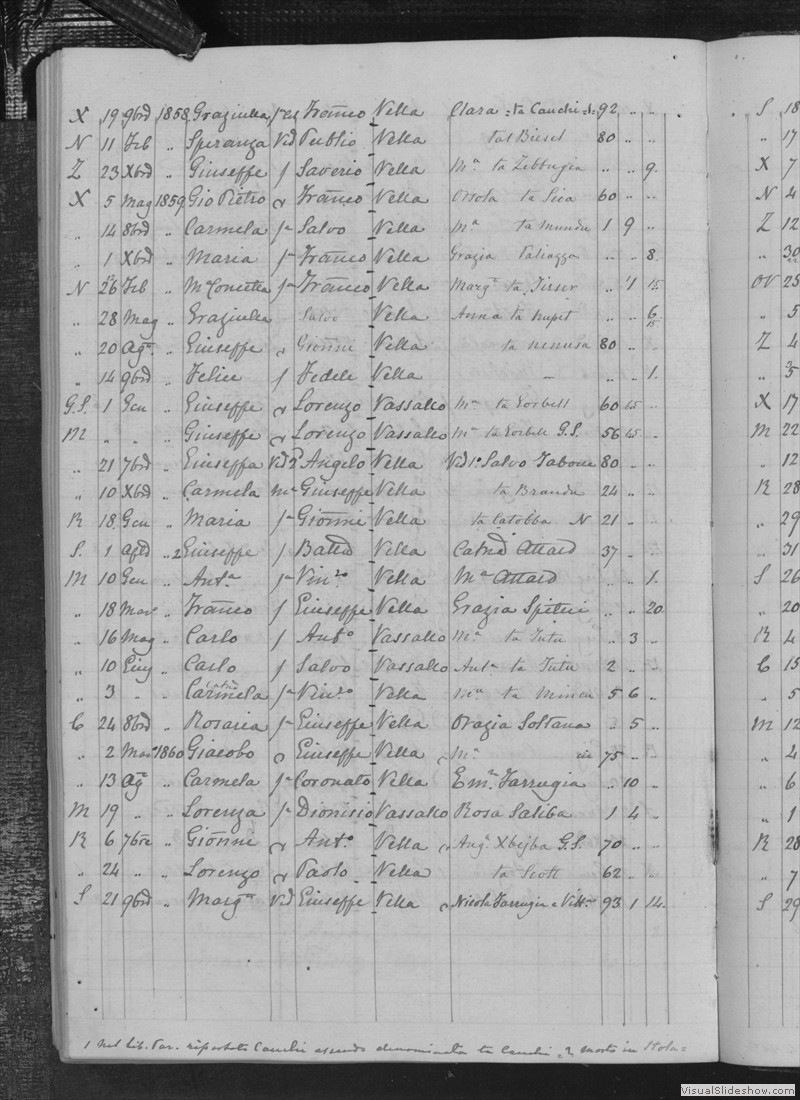 X 19 9brė 1858 Graziulla Franco Vella Clara ta Cauchi 92 " "
N 11 Feb " Speranza Vid Publio Vella tal Bisel 80 " "
Z 23 Xbrė " Giuseppe f Saverio Vella Mᵃ ta Zebbugia " " 9
X 5 Mag 1859 Gio Pietro Franco Vella Orsola ta 60 " "
" 14 8brė " Carmela fᵃ Salvo Vella Mᵃ ta Mundu 1 9 "
" 1 Xbrė " Maria fᵃ Franco Vella Grazia " " 8
N 26 Feb " Mᵃ Concetta fᵃ Franco Vella Margᵃ ta " 1 15
" 28 Mag " Graziulla Salvo Vella Anna ta " " 6
15
" 20 Agᵗᵒ " Giuseppe Gionni Vella ta nenusa 80 " "
" 14 9brė " Felice f Fedele Vella " " 1
G.S. 1 Gen " Giuseppe Lorenzo Vassallo Mᵃ ta 60 15 "
M " " " Giuseppe Lorenzo Vassallo Mᵃ ta G.S. 56 15 "
" 21 7brė " Giuseppa Vid 2ᵒ Angelo Vella Vid 1ᵒ Salvo Tabone 80 " "
" 10 Xbrė " Carmela Giuseppe Vella ta Branda 24 " "
R 18 Gen " Maria fᵃ Gionni Vella ta Catobba N 21 " "
S. 1 " 2 Giuseppe f Battᵃ Vella Attard 37 " "
M 10 Gen " Antᵃ fᵃ Vinᶻᵒ Vella Mᵃ Attard " " 1
" 18 Mar " Franco f Giuseppe Vella Grazia Spiteri " " 20
" 16 Mag " Carlo f Antᵒ Vassallo Mᵃ ta Tutu " 3 "
" 10 Giug " Carlo f Salvo Vassallo Antᵃ ta Tutu 2 " "
" 3 " " Carmela fᵃ Vinᶻᵒ Vella Mᵃ ta 5 6
C 24 8brė " Rosaria fᵃ Giuseppe Vella Orazia Soltana " 5 "
" 2 Mar 1860 Giacobo Giuseppe Vella Mᵃ 75 " "
" 13 Agᵗᵒ " Carmela fᵃ Coronato Vella Emᵃ Farrugia " 10 "
M 19 " " Lorenza fᵃ Dionisio Vassallo Rosa Saliba 1 4 "
R 6 7bre " Gionni Antᵒ Vella Angᵃ Xbejba G.S. 70 " "
" 24 " " Lorenzo Paolo Vella ta Scott 62 " "
S 21 9brė " Margᵃ Vid Giuseppe Vella Nicola Farrugia e Vittᵃ 93 1 14
1 Nel Lib. Par. riportata Cauchi essendo denominata ta Cauchi 2 morto in
S 18
" 17
X 7
N 4
Z 12
" 30
OV 25
" 5
Z 4
" 5
X 17
M 22
" 12
R 28
" 29
" 31
S 26
" 20
R 4
C 15
" 5
M 12
" 4
" 6
" 1
R 28
" 7
S 29
VisualSlideshow.com